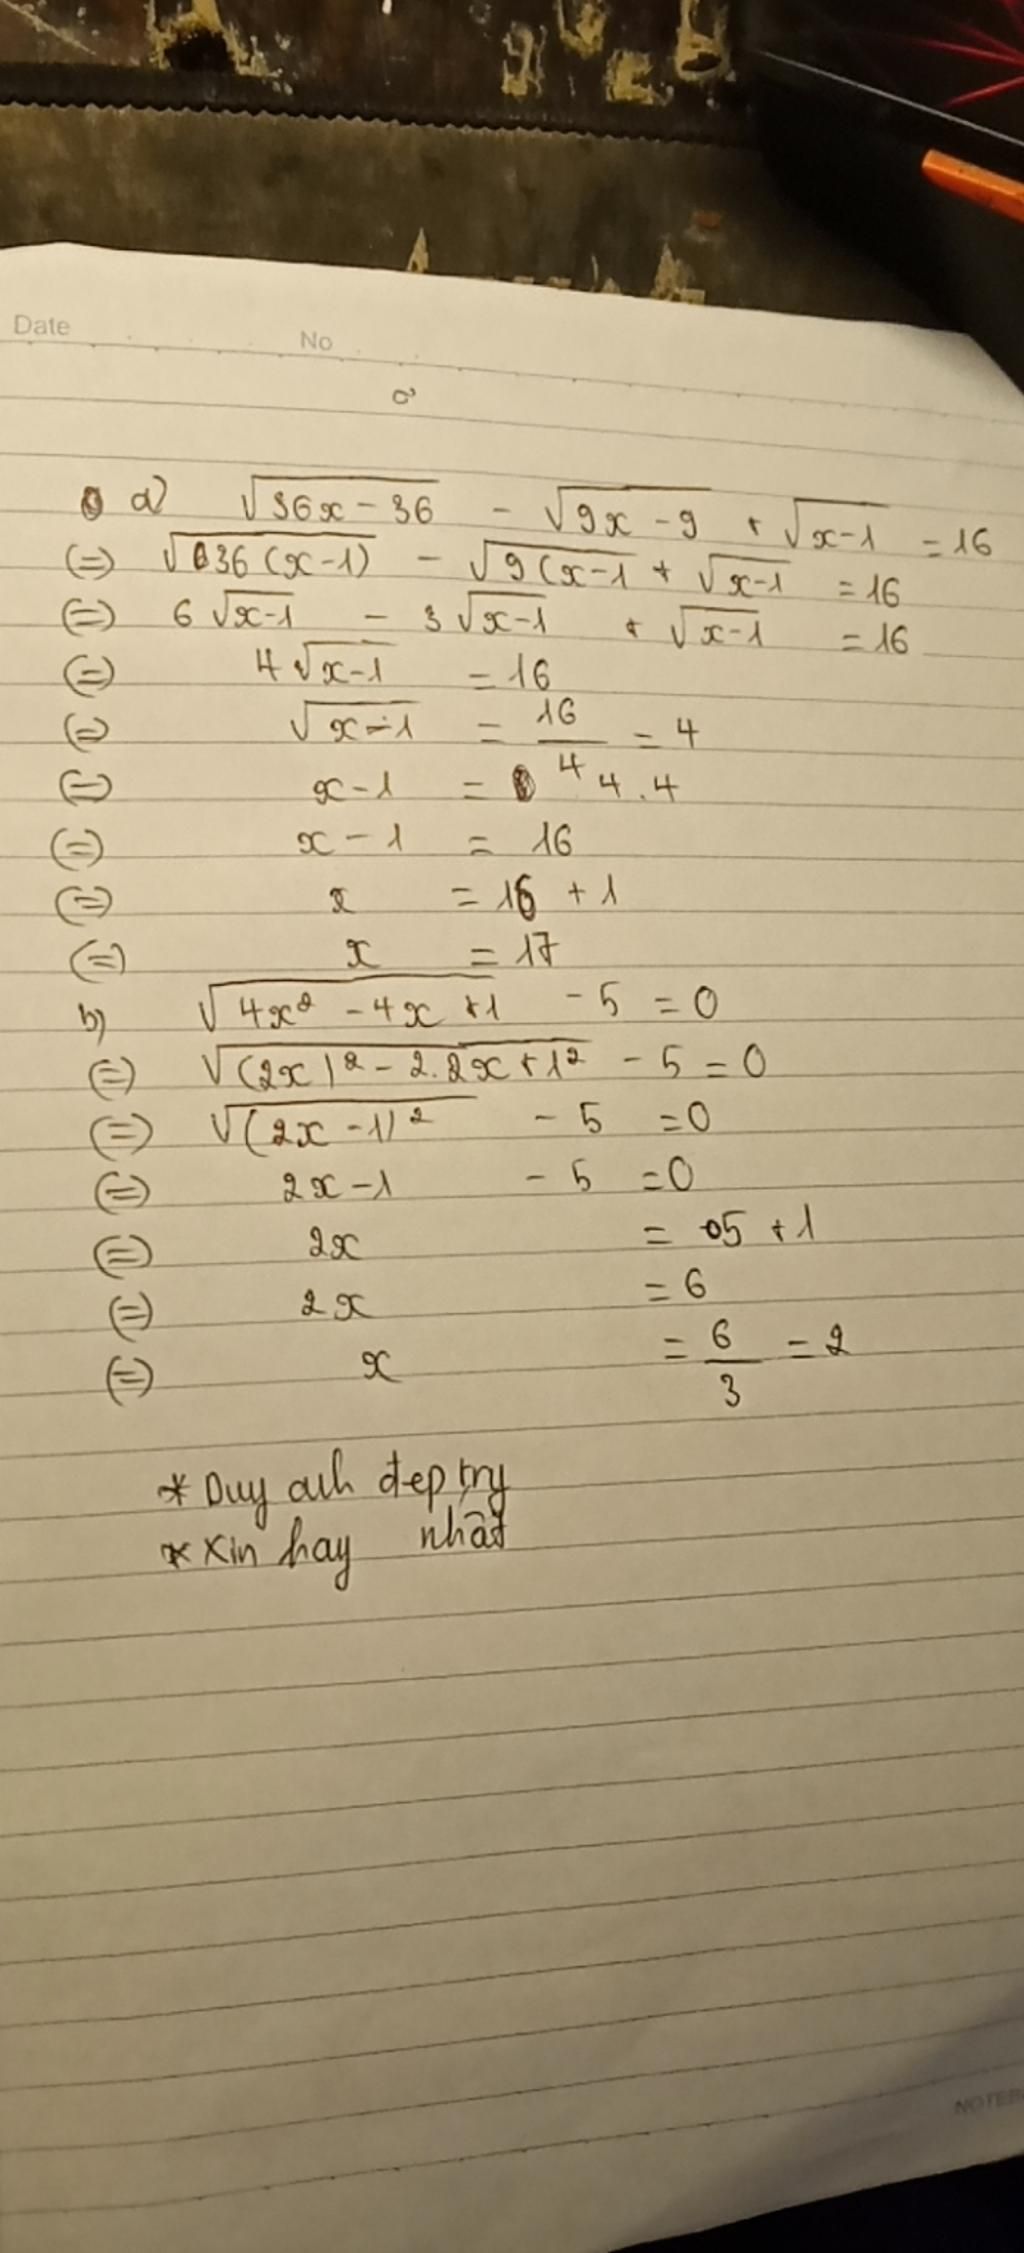 Date No
a) √36x-36 - √9x-9 + √x-1 = 16
(=) √36(x-1) - √9(x-1 + √x-1 = 16
(=) 6√x-1 - 3√x-1 + √x-1 = 16
(=) 4√x-1 = 16
(=) √x-1 = 16/4 = 4
(=) x-1 = 4.4
(=) x-1 = 16
(=) x = 16 + 1
(=) x = 17
b) √4x²-4x+1 - 5 = 0
(=) √(2x)²-2.2x+1² - 5 = 0
(=) √(2x-1)² - 5 = 0
(=) 2x-1 - 5 = 0
(=) 2x = 5 + 1
(=) 2x = 6
(=) x = 6/3 = 2
* Duy anh đẹp try
* Xin hay nhất